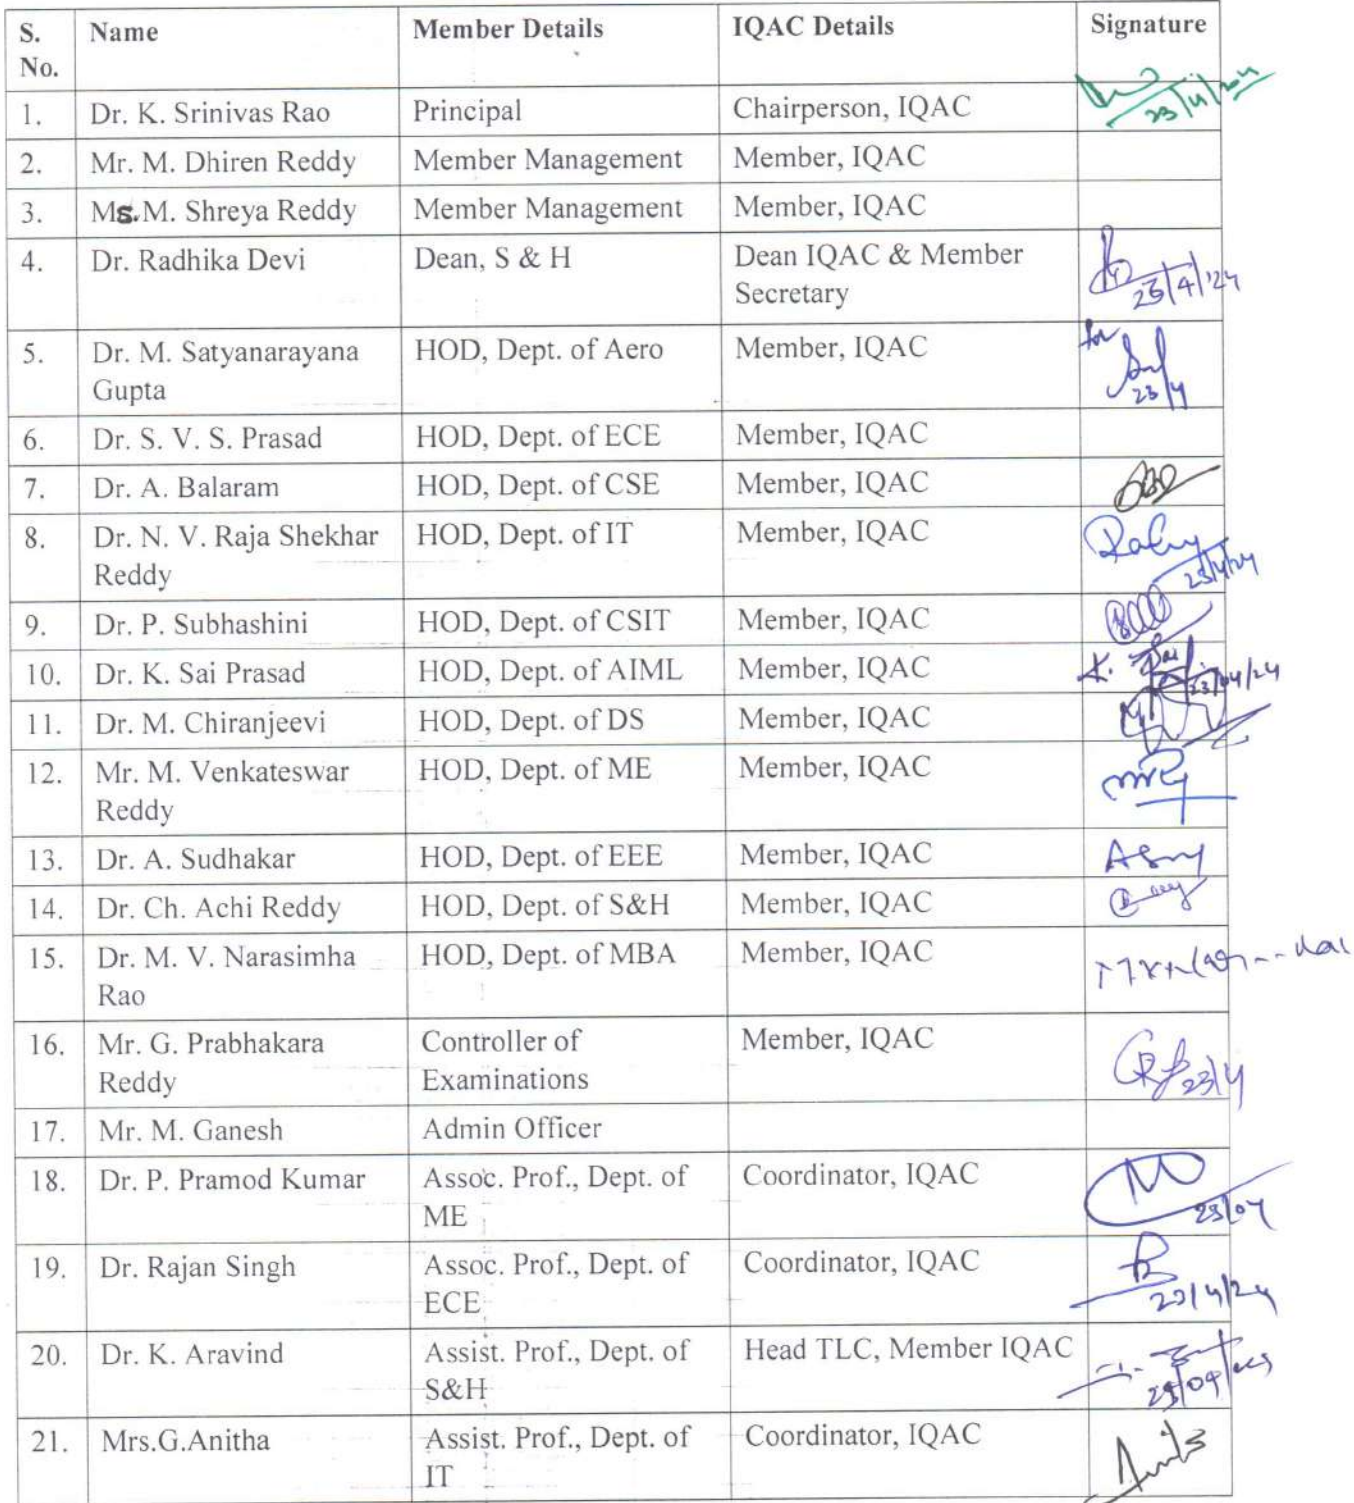 S. No. Name Member Details IQAC Details Signature
1. Dr. K. Srinivas Rao Principal Chairperson, IQAC
2. Mr. M. Dhiren Reddy Member Management Member, IQAC
3. Ms. M. Shreya Reddy Member Management Member, IQAC
4. Dr. Radhika Devi Dean, S & H Dean IQAC & Member
Secretary
5. Dr. M. Satyanarayana HOD, Dept. of Aero Member, IQAC for
Gupta 23/4
6. Dr. S. V. S. Prasad HOD, Dept. of ECE Member, IQAC
7. Dr. A. Balaram HOD, Dept. of CSE Member, IQAC
8. Dr. N. V. Raja Shekhar HOD, Dept. of IT Member, IQAC
Reddy 23/4/24
9. Dr. P. Subhashini HOD, Dept. of CSIT Member, IQAC
10. Dr. K. Sai Prasad HOD, Dept. of AIML Member, IQAC 23/04/24
11. Dr. M. Chiranjeevi HOD, Dept. of DS Member, IQAC
12. Mr. M. Venkateswar HOD, Dept. of ME Member, IQAC
Reddy
13. Dr. A. Sudhakar HOD, Dept. of EEE Member, IQAC
14. Dr. Ch. Achi Reddy HOD, Dept. of S&H Member, IQAC
15. Dr. M. V. Narasimha HOD, Dept. of MBA Member, IQAC
Rao
16. Mr. G. Prabhakara Controller of Member, IQAC
Reddy Examinations 23/4
17. Mr. M. Ganesh Admin Officer
18. Dr. P. Pramod Kumar Assoc. Prof., Dept. of Coordinator, IQAC
ME 23/04
19. Dr. Rajan Singh Assoc. Prof., Dept. of Coordinator, IQAC
ECE 23/4/24
20. Dr. K. Aravind Assist. Prof., Dept. of Head TLC, Member IQAC
S&H
21. Mrs.G.Anitha Assist. Prof., Dept. of Coordinator, IQAC
IT